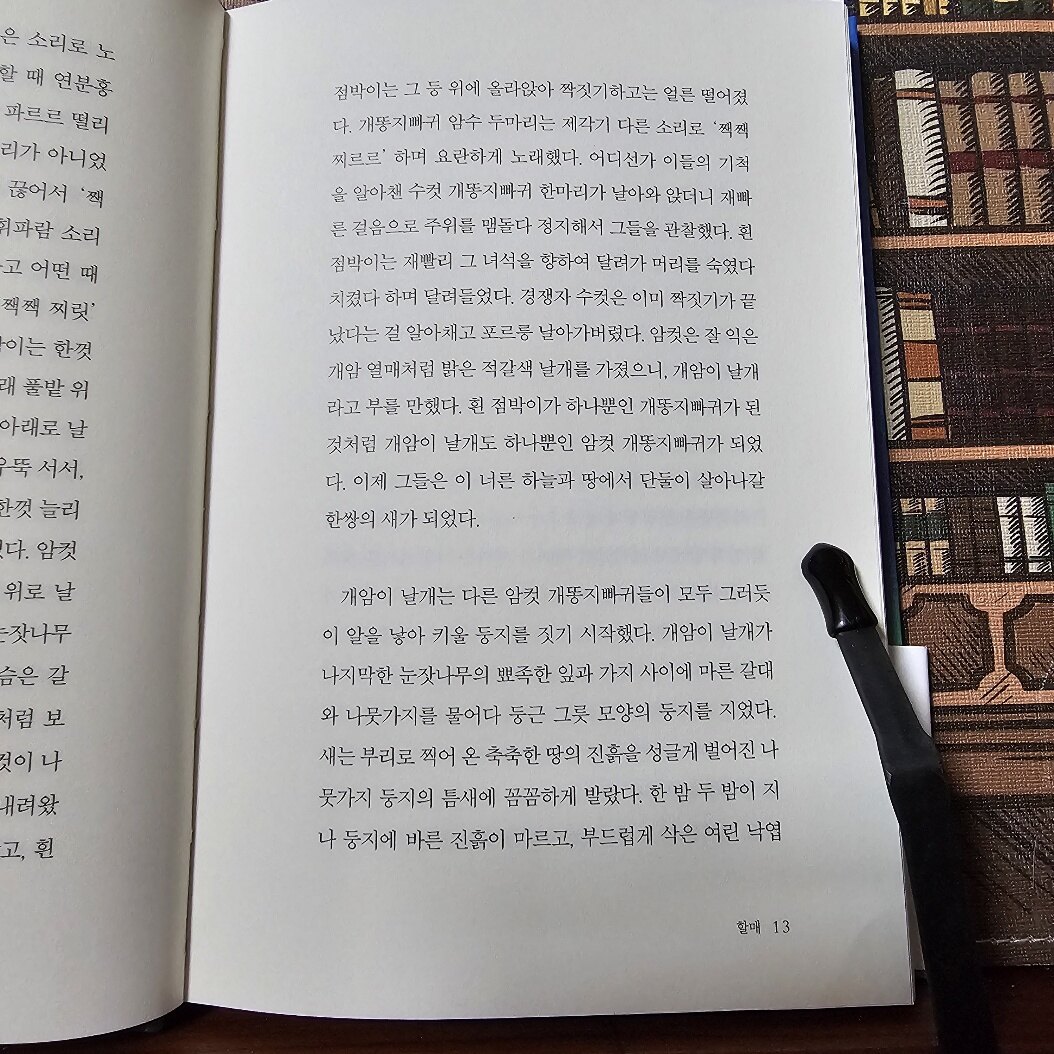 은 소리로 노
할 때 연분홍
파르르 떨리
리가 아니었
끊어서 ‘짹
휘파람 소리
고 어떤 때
짹짹 찌릿’
이는 한껏
래 풀밭 위
아래로 날
우뚝 서서,
한껏 늘리
다. 암컷
위로 날
눈잣나무
슴은 갈
처럼 보
것이 나
내려왔
고, 흰
점박이는 그 등 위에 올라앉아 짝짓기하고는 얼른 떨어졌
다. 개똥지빠귀 암수 두마리는 제각기 다른 소리로 ‘짹짹
찌르르’ 하며 요란하게 노래했다. 어디선가 이들의 기척
을 알아챈 수컷 개똥지빠귀 한마리가 날아와 앉더니 재빠
른 걸음으로 주위를 맴돌다 정지해서 그들을 관찰했다. 흰
점박이는 재빨리 그 녀석을 향하여 달려가 머리를 숙였다
치켰다 하며 달려들었다. 경쟁자 수컷은 이미 짝짓기가 끝
났다는 걸 알아채고 포르릉 날아가버렸다. 암컷은 잘 익은
개암 열매처럼 밝은 적갈색 날개를 가졌으니, 개암이 날개
라고 부를 만했다. 흰 점박이가 하나뿐인 개똥지빠귀가 된
것처럼 개암이 날개도 하나뿐인 암컷 개똥지빠귀가 되었
다. 이제 그들은 이 너른 하늘과 땅에서 단둘이 살아나갈
한쌍의 새가 되었다.
개암이 날개는 다른 암컷 개똥지빠귀들이 모두 그러듯
이 알을 낳아 키울 둥지를 짓기 시작했다. 개암이 날개가
나지막한 눈잣나무의 뾰족한 잎과 가지 사이에 마른 갈대
와 나뭇가지를 물어다 둥근 그릇 모양의 둥지를 지었다.
새는 부리로 찍어 온 축축한 땅의 진흙을 성글게 벌어진 나
뭇가지 둥지의 틈새에 꼼꼼하게 발랐다. 한 밤 두 밤이 지
나 둥지에 바른 진흙이 마르고, 부드럽게 삭은 여린 낙엽
할매 13